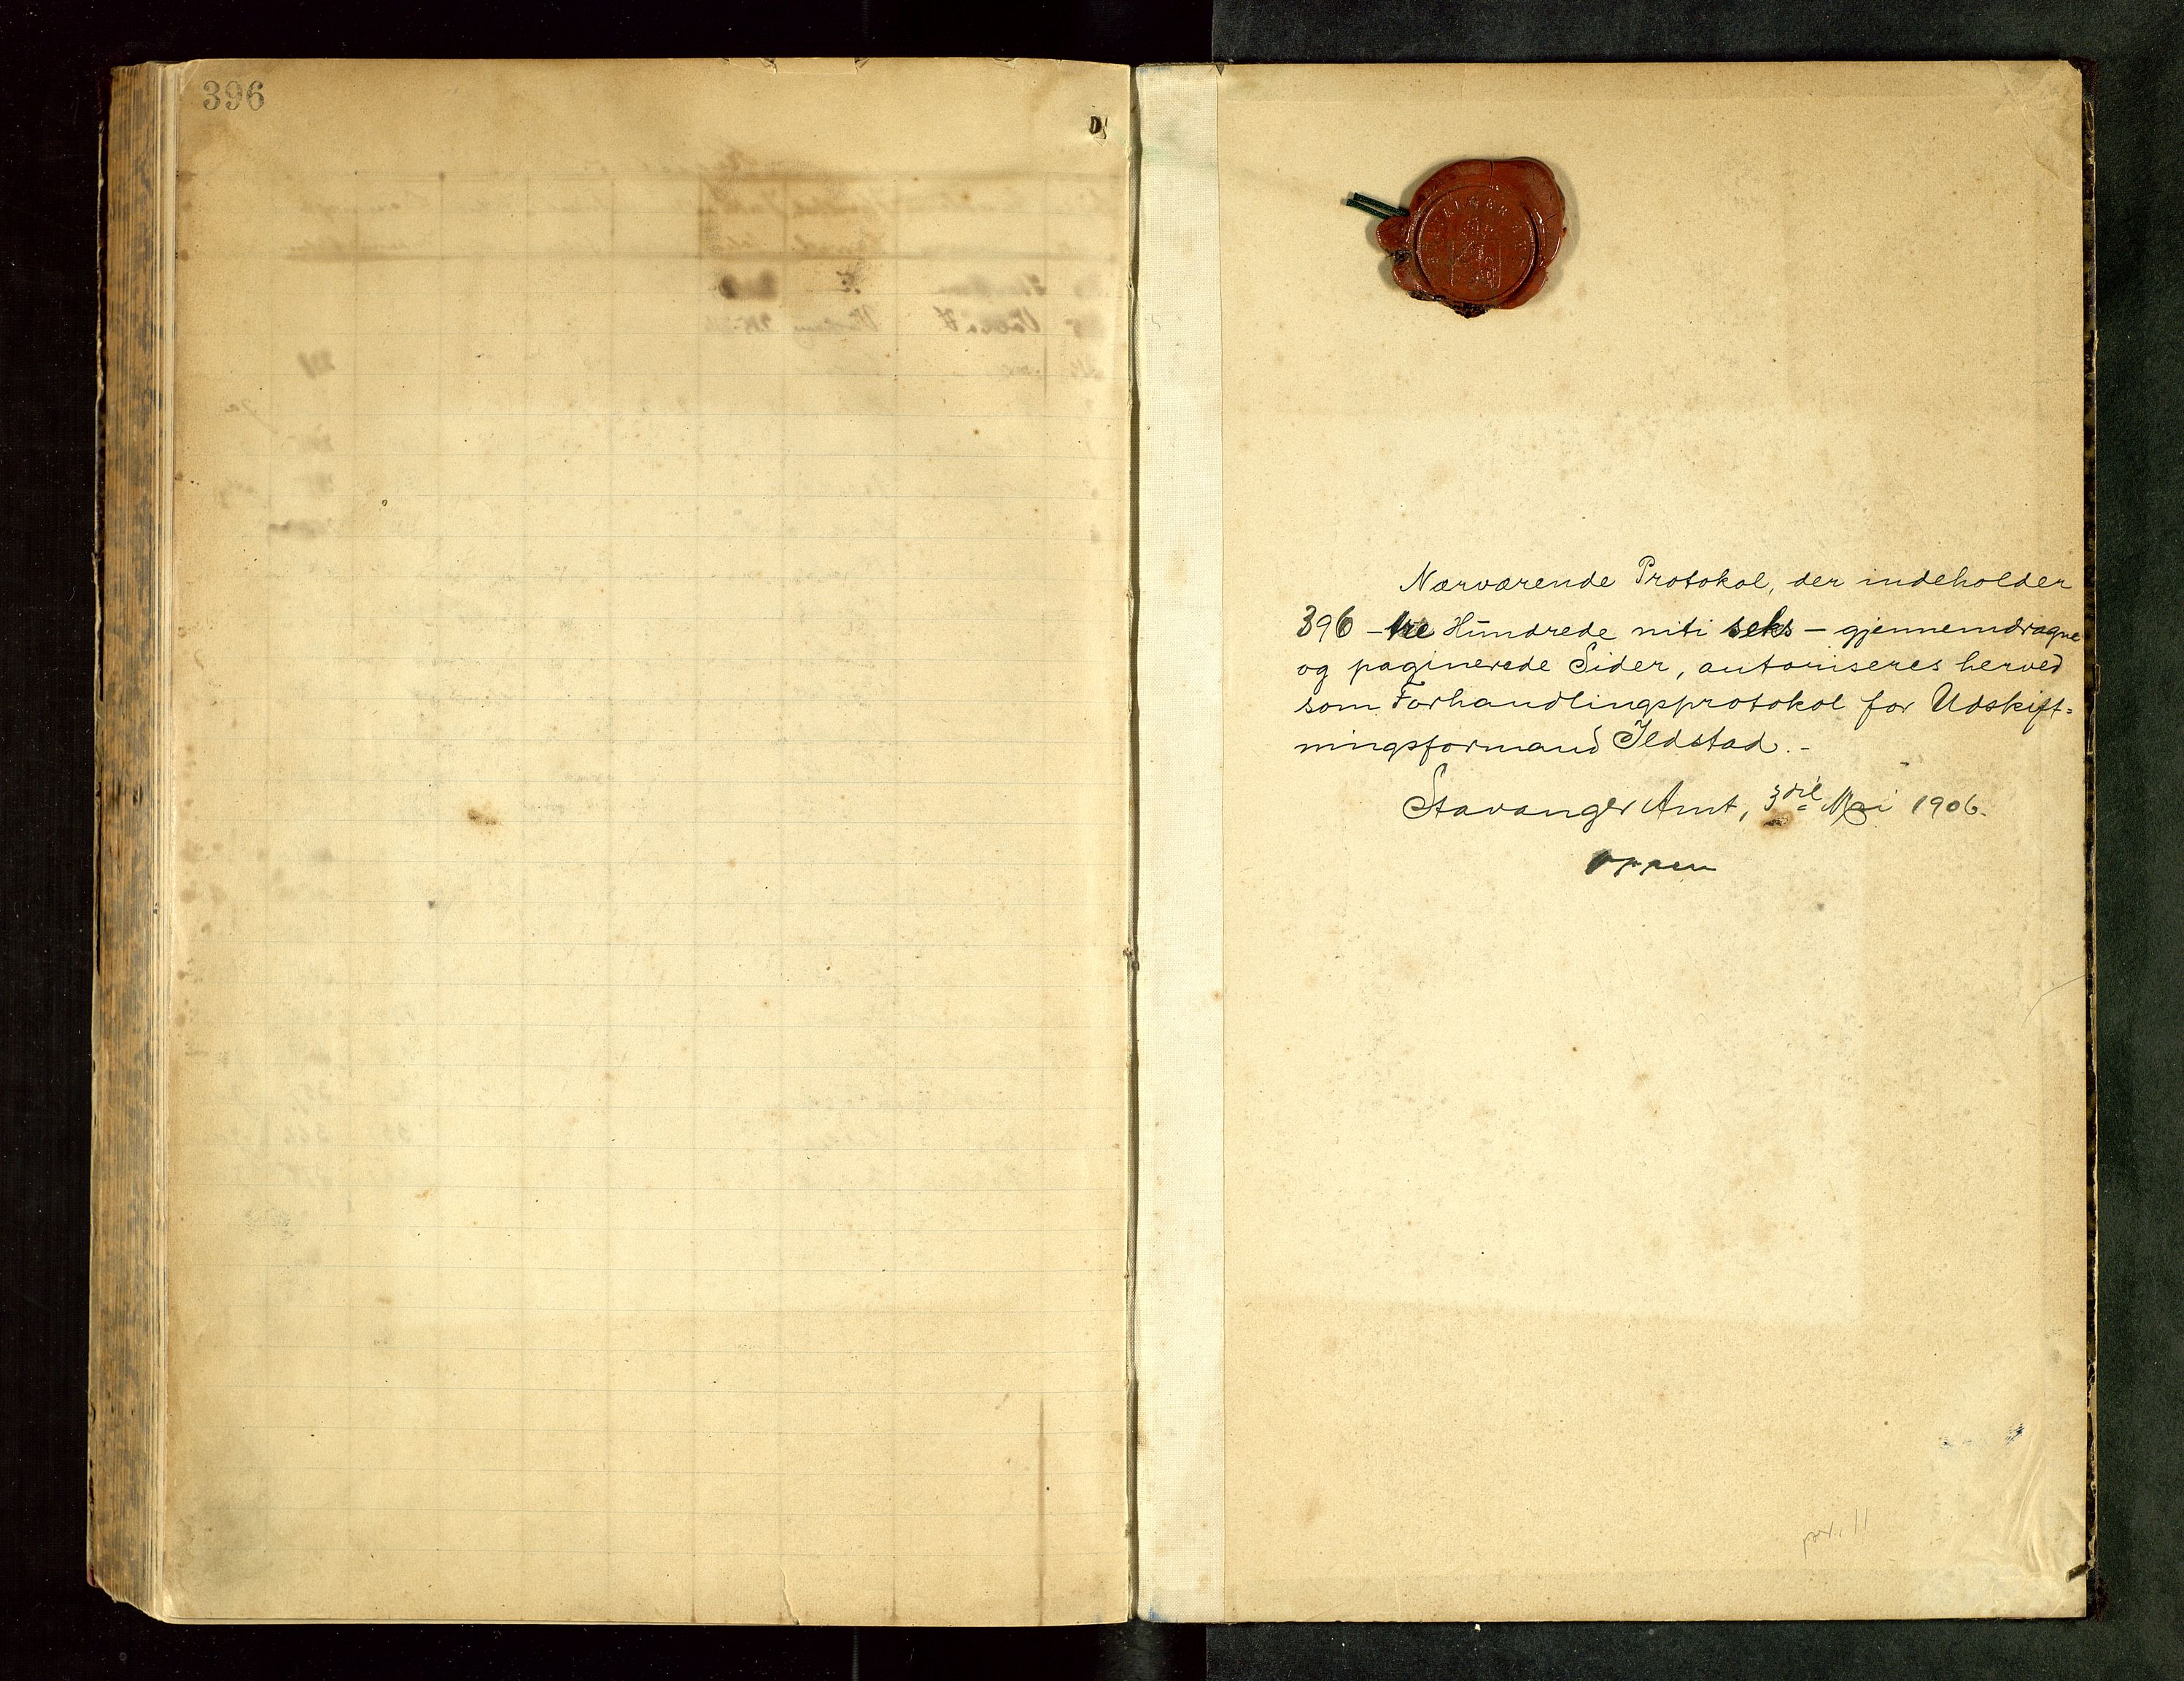 396
Nærværende Protokol, der indeholder
396 - tre Hundrede niti seks - gjennemdragne
og paginerede Sider, autoriseres herved
som Forhandlingsprotokol for Udskift=
ningsformand Ildstad. -
Stavanger Amt, 3die Mai 1906.
Oppen